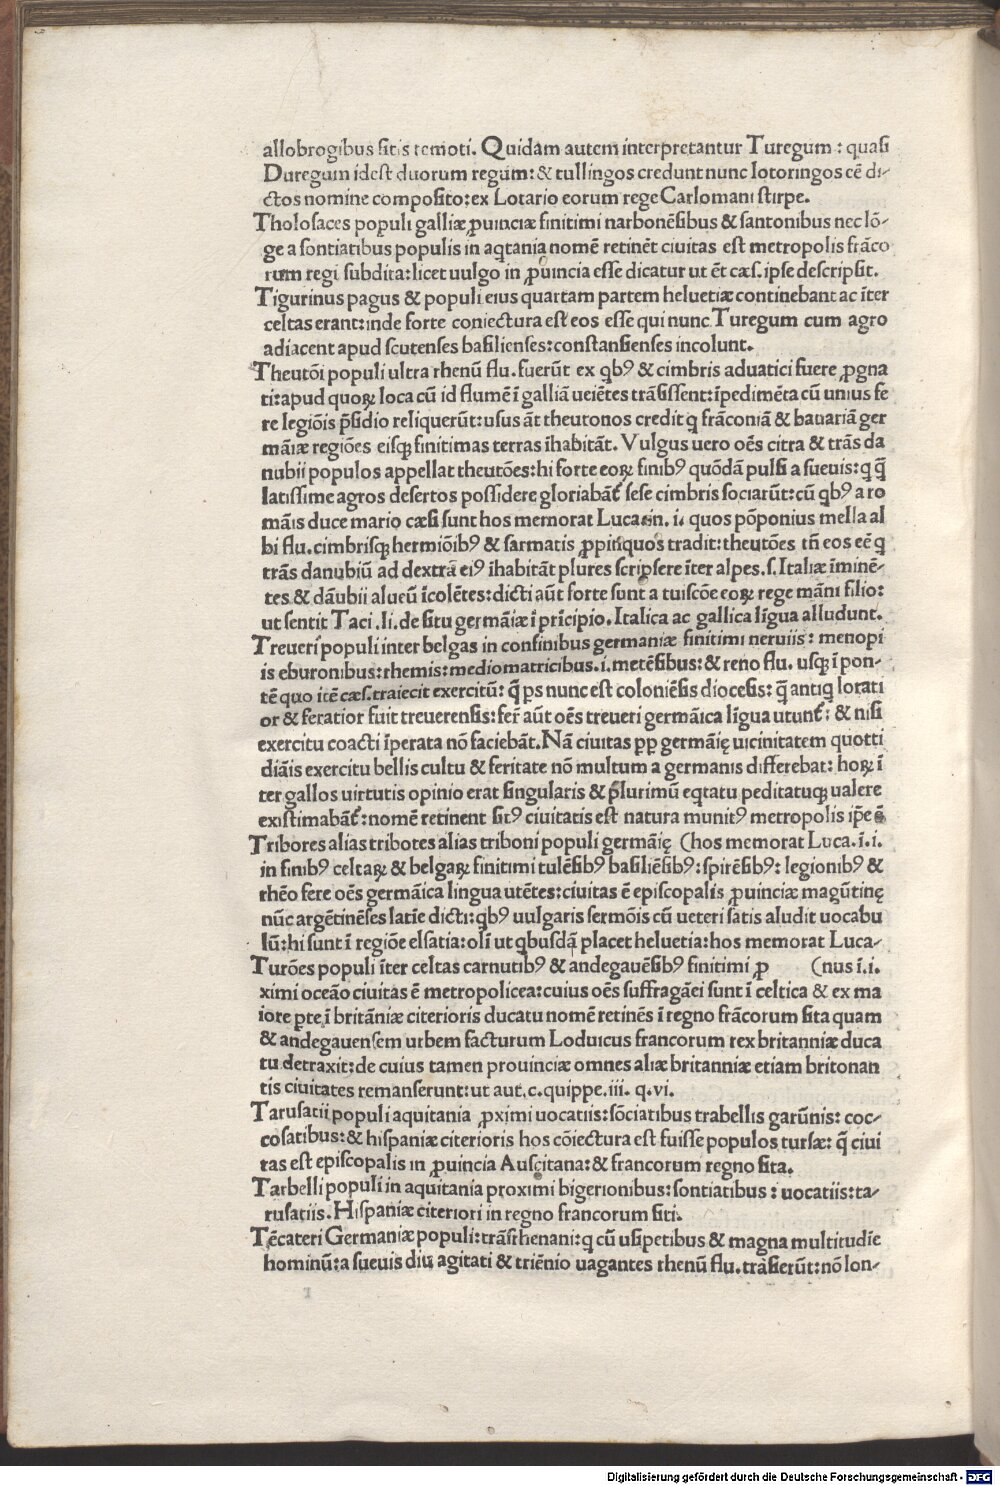 allobrogibus sitis remoti. Quidam autem interpretantur Turegum : quasi
Duregum idest duorum regum: & tullingos credunt nunc lotoringos eē di-
ctos nomine composito: ex Lotario eorum rege Carlomani stirpe.
Tholosaces populi galliæ ꝓuinciæ finitimi narbonēsibus & santonibus nec lō-
ge a sontiatibus populis in aq̇tania nomē retinēt ciuitas est metropolis frāco
rum regi subdita: licet uulgo in ꝓuincia esse dicatur ut ēt cæs. ipse descripsit.
Tigurinus pagus & populi eius quartam partem heluetiæ continebant ac īter
celtas erant: inde forte coniectura est eos esse qui nunc Turegum cum agro
adiacent apud scutenses basilienses: constansienses incolunt.
Theutōi populi ultra rhenū flu. fuerūt ex qbꝰ & cimbris aduatici fuere ꝓgna
ti: apud quoꝝ loca cū id flumē ī galliā ueiētes trāsissent: īpedimēta cū unius fe
re legiōis p̄sidio reliquerūt: usus āt theutonos credit q frāconiā & bauariā ger
māiæ regiōes eisqꝫ finitimas terras īhabitāt. Vulgus uero oēs citra & trās da
nubii populos appellat theutōes: hi forte eoꝝ finibꝰ quōdā pulsi a sueuis: q q̄
latissime agros desertos possidere gloriabāt̄ sese cimbris sociarūt: cū qbꝰ a ro
māis duce mario cæsi sunt hos memorat Lucasin. i. quos pōponius mella al
bi flu. cimbrisqꝫ hermiōibꝰ & sarmatis ꝓpinquos tradit: theutōes tn̄ eos eē q̄
trās danubiū ad dextrā eiꝰ īhabitāt plures scripsere īter alpes. s. Italiæ īminē-
tes & dāubii alueū īcolētes: dicti aūt forte sunt a tuiscōe eoꝝ rege māni filio:
ut sentit Taci .li. de situ germāiæ ī prīcipio. Italica ac gallica līgua alludunt.
Treueri populi inter belgas in confinibus germaniæ finitimi neruiis: menopi
is eburonibus: rhemis: mediomatricibus. i. metēsibus: & reno flu. usqꝫ ī pon-
tē quo itē cæs. traiecit exercitū: q̄ ps nunc est coloniēsis diocesis: q̄ antiq lorati
or & feratior fuit treuerensis: fer̄ aūt oēs treueri germāica līgua utunt̄: & nisi
exercitu coacti īperata nō faciebāt. Nā ciuitas ꝓp germāię uicinitatem quotti
diāis exercitu bellis cultu & feritate nō multum a germanis differebat: hoꝝ ī
ter gallos uirtutis opinio erat singularis & p̄lurimū eq̇tatu peditatuqꝫ ualere
existimabāt̄: nomē retinent sitꝰ ciuitatis est natura munitꝰ metropolis ip̄e ē
Tribores alias tribotes alias triboni populi germāię (hos memorat Luca. ī. i.
in finibꝰ celtaꝝ & belgaꝝ finitimi tulēsibꝰ basiliēsibꝰ: spirēsibꝰ: legionibꝰ &
rhēo fere oēs germāica lingua utētes: ciuitas ē episcopalis ꝓuinciæ magūtinę
nūc argētinēses latīe dicti: qbꝰ uulgaris sermōis cū ueteri satis aludit uocabu
lū: hi sunt ī regiōe elsatia: olī ut qbusdā placet heluetia: hos memorat Luca-
Turōes populi īter celtas carnutibꝰ & andegauēsibꝰ finitimi ꝓ (nus ī. i.
ximi oceāo ciuitas ē metropolicea: cuius oēs suffragāei sunt ī celtica & ex ma
iore ꝑte ī britāniæ citerioris ducatu nomē retinēs ī regno frācorum sita quam
& andegauensem urbem facturum Lodoicus francorum rex britanniæ duca
tu detraxit: de cuius tamen prouinciæ omnes aliæ britanniæ etiam britonan
tis ciuitates remanserunt: ut aut. c. quippe. iii. q. vi.
Tarusatii populi aquitania ꝓximi uocatiis: sōciatibus trabellis garūnis: coc-
cosatibus: & hispaniæ citerioris hos cōiectura est fuisse populos tursæ: q̄ ciui
tas est episcopalis in ꝓuincia Auscitana: & francorum regno sita.
Tarbelli populi in aquitania proximi bigerionibus: sontiatibus : uocatiis: ta-
rusatiis. Hispaniæ citeriori in regno francorum siti.
Tēcateri Germaniæ populi: trāsrhenani: q cū usipetibus & magna multitudīe
hominū: a sueuis diu agitati & triēnio uagantes rhenū flu. trāsierūt: nō lon-
Digitalisierung gefördert durch die Deutsche Forschungsgemeinschaft - DFG